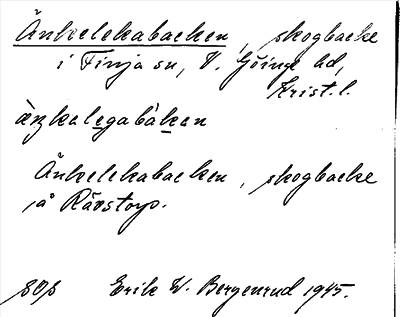 Änkelekabacken, skogbacke
i Finja sn, V. Göinge hd,
Krist. l.
àŋkalegabàkan
Änkelekabacken, skogbacke
på Rävstorp.
Erik W. Bergenrud 1945.